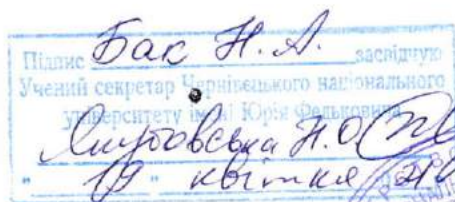 Підпис Бак Н. А. засвідчую
Учений секретар Чернівецького національного
університету імені Юрія Федьковича
Н.О.
" 19 " квітня